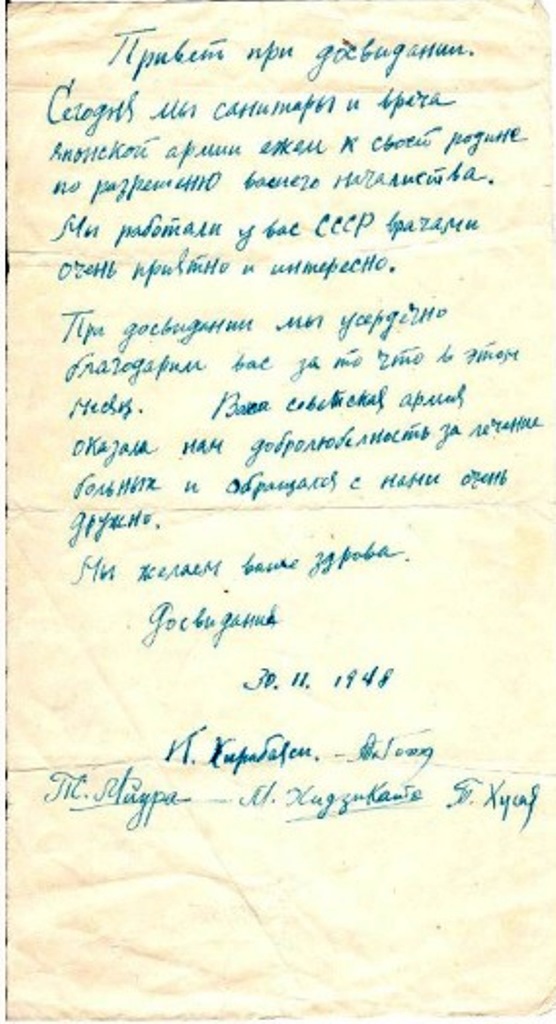 Привет при досвидании.
Сегодня мы санитары и врача
японской армии ежем к своей родине
по разрешеню вашего началиства.
Мы работали у вас СССР врачами
очень приятно и интересно.
При досвидании мы усердечно
благодарим вас за то что в этом
месяц. Ваша советская армия
оказала нам добролюбельность за лечение
больных и обращался с нами очень
дружно.
Мы желаем ваше здрова.
Досвидания
30. 11. 1948
И. Хирабаяси. –
Т. Миура – М. Хидзиката Т. Хусая